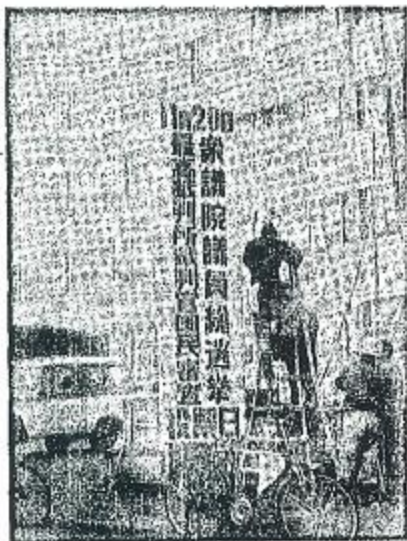 11月20日
衆議院議員総選挙
最高裁判所裁判官国民審査
投票日